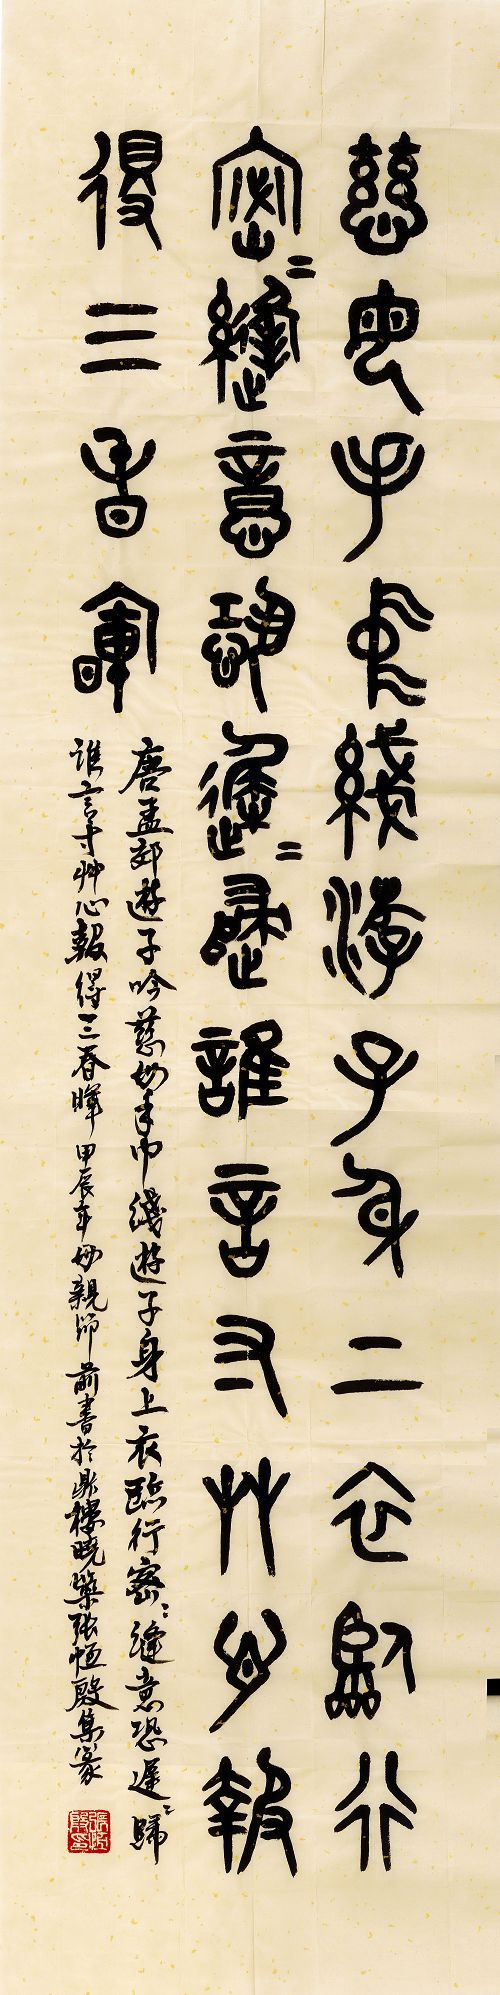 慈母手中綫游子身上衣臨行
密〻縫意恐遲〻歸誰言寸艸心報
得三春暉
唐孟郊遊子吟慈母手中綫遊子身上衣臨行密〻縫意恐遲〻歸
誰言寸艸心報得三春暉 甲辰年母親節前書於鼎樓曉張恒殷集篆
張恒殷印